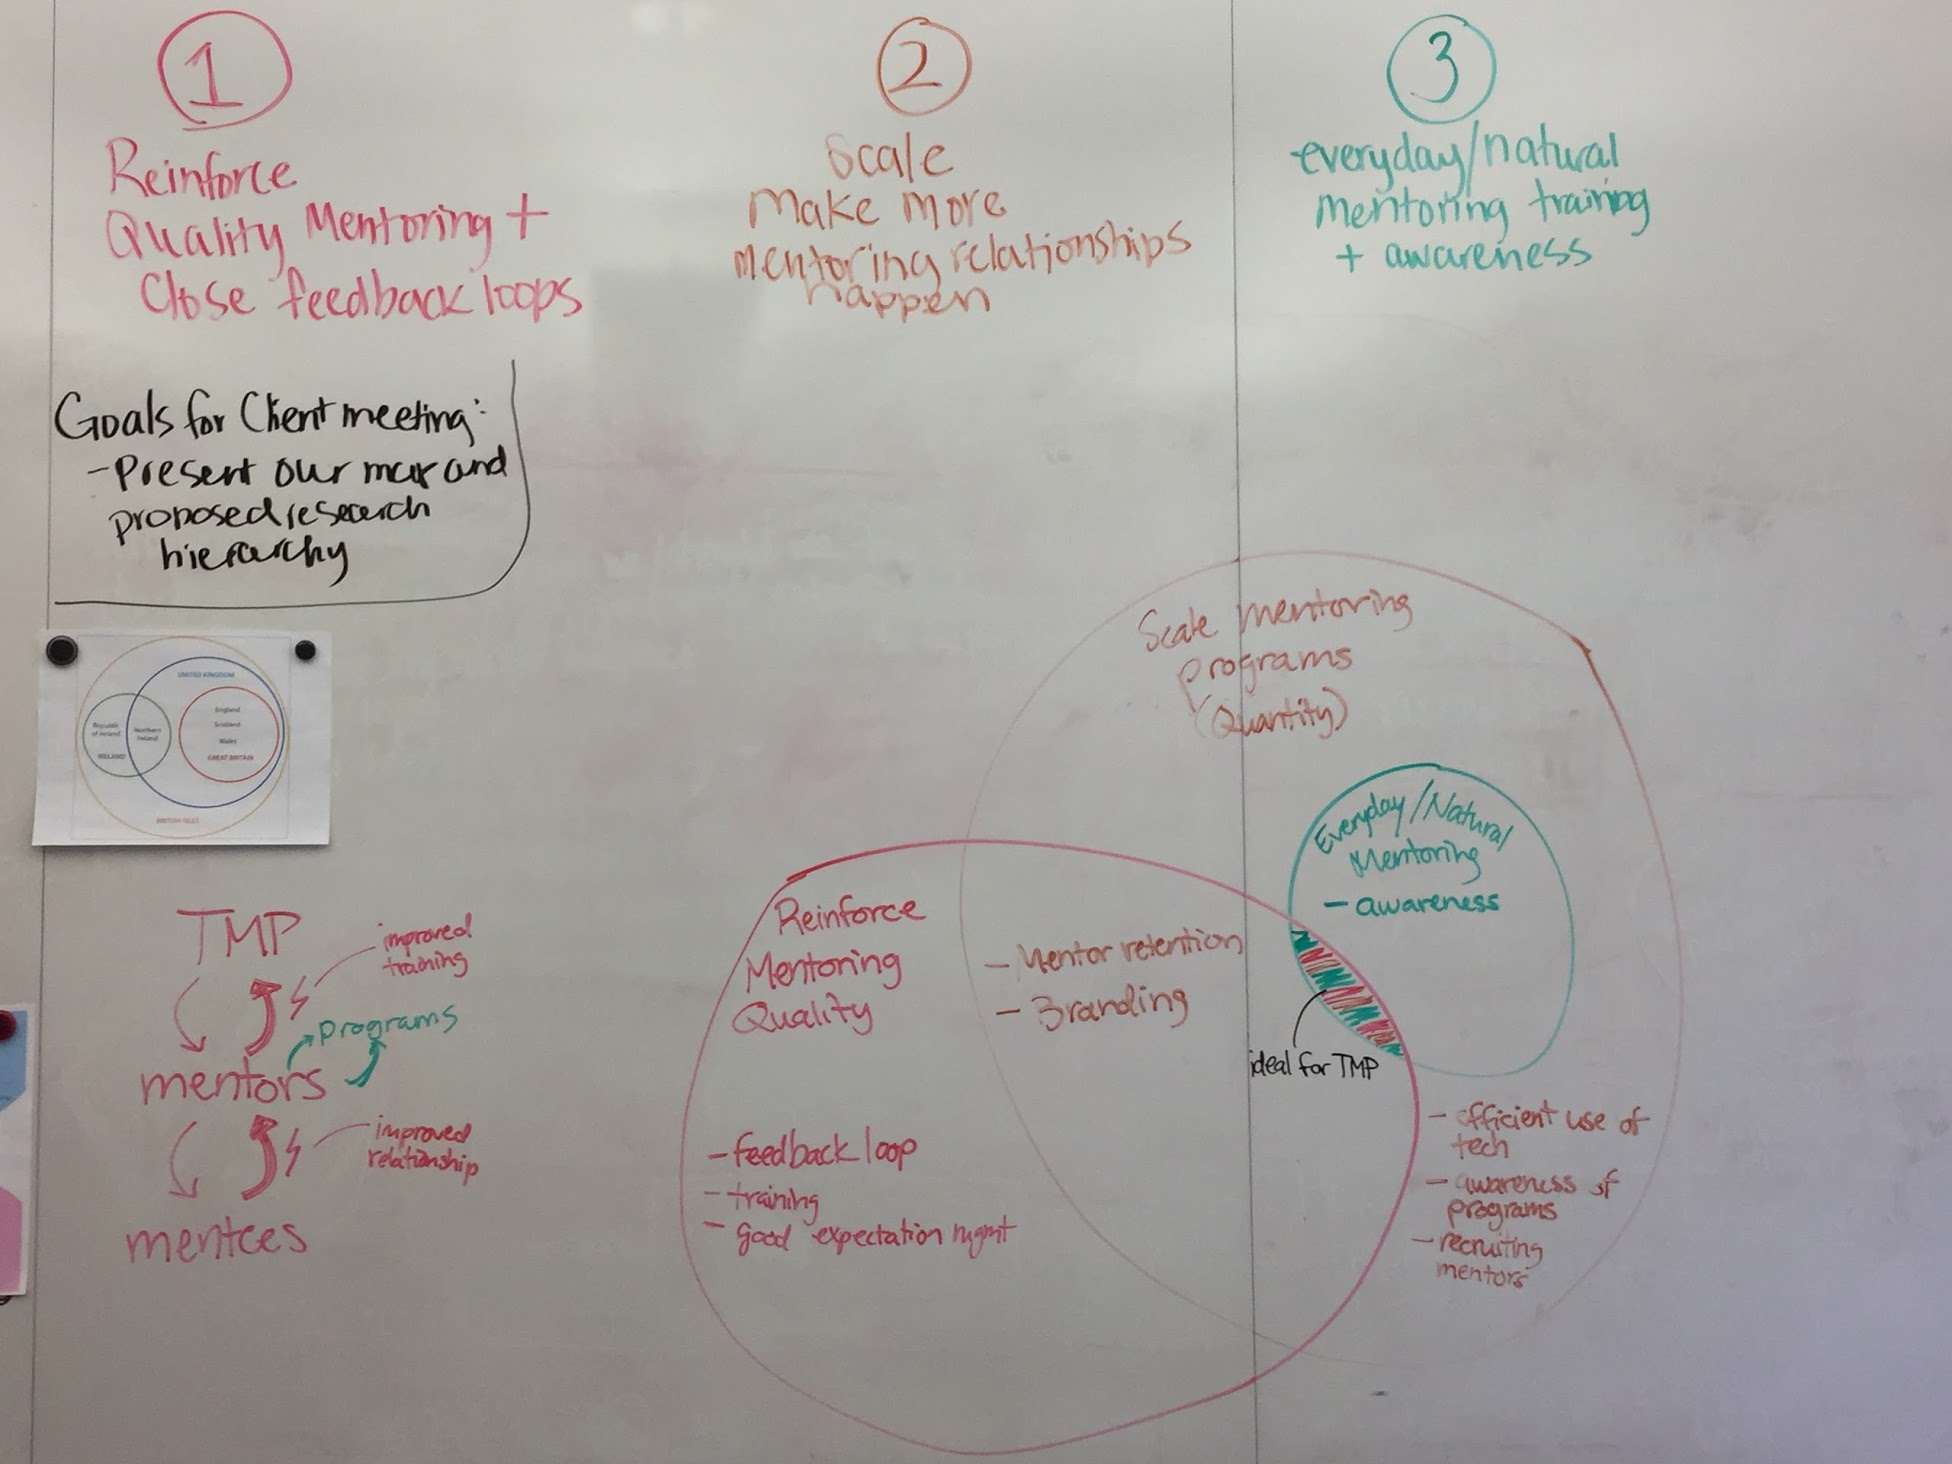 1
Reinforce
Quality Mentoring +
Close feedback loops
2
Scale
Make more
mentoring relationships
happen
3
everyday/natural
mentoring training
+ awareness
Goals for Client meeting:
- Present our map and
proposed research
hierarchy
UNITED KINGDOM
England
Scotland
Wales
GREAT BRITAIN
Republic
of Ireland
Northern
Ireland
IRELAND
BRITISH ISLES
TMP
improved
training
programs
mentors
improved
relationship
mentees
Scale mentoring
programs
(Quantity)
Everyday/Natural
Mentoring
- awareness
Reinforce
Mentoring
Quality
- Mentor retention
- Branding
ideal for TMP
- feedback loop
- training
- good expectation mgmt
- efficient use of
tech
- awareness of
programs
- recruiting
mentors